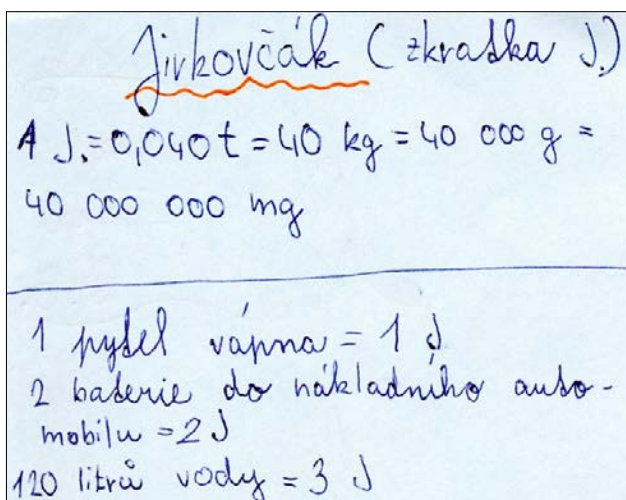 Jirkovčák (zkratka J.)
1 J. = 0,040 t = 40 kg = 40 000 g =
40 000 000 mg
1 pytel vápna = 1 J
2 baterie do nákladního auto-
mobilu = 2 J
120 litrů vody = 3 J